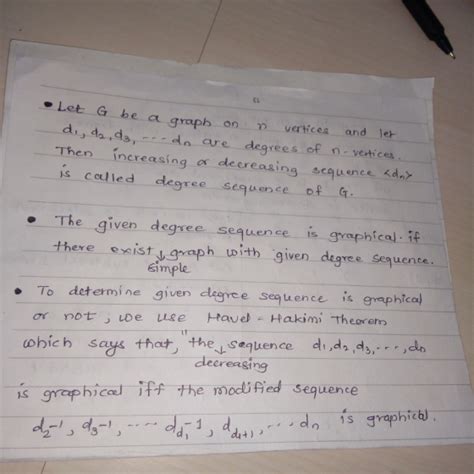 • Let G be a graph on n vertices and let
d₁, d₂, d₃, ---- dn are degrees of n-vertices.
Then increasing or decreasing sequence <dn>
is called degree sequence of G.
• The given degree sequence is graphical. if
there exist ↓ graph with given degree sequence.
simple
• To determine given degree sequence is graphical
or not, we use Havel-Hakimi Theorem
which says that, "the ↓ sequence d₁, d₂, d₃, ---, dn
decreasing
is graphical iff the modified sequence
d₂-1, d₃-1, ---- d_d₁-1, d_d₁+1, --- dn is graphical.